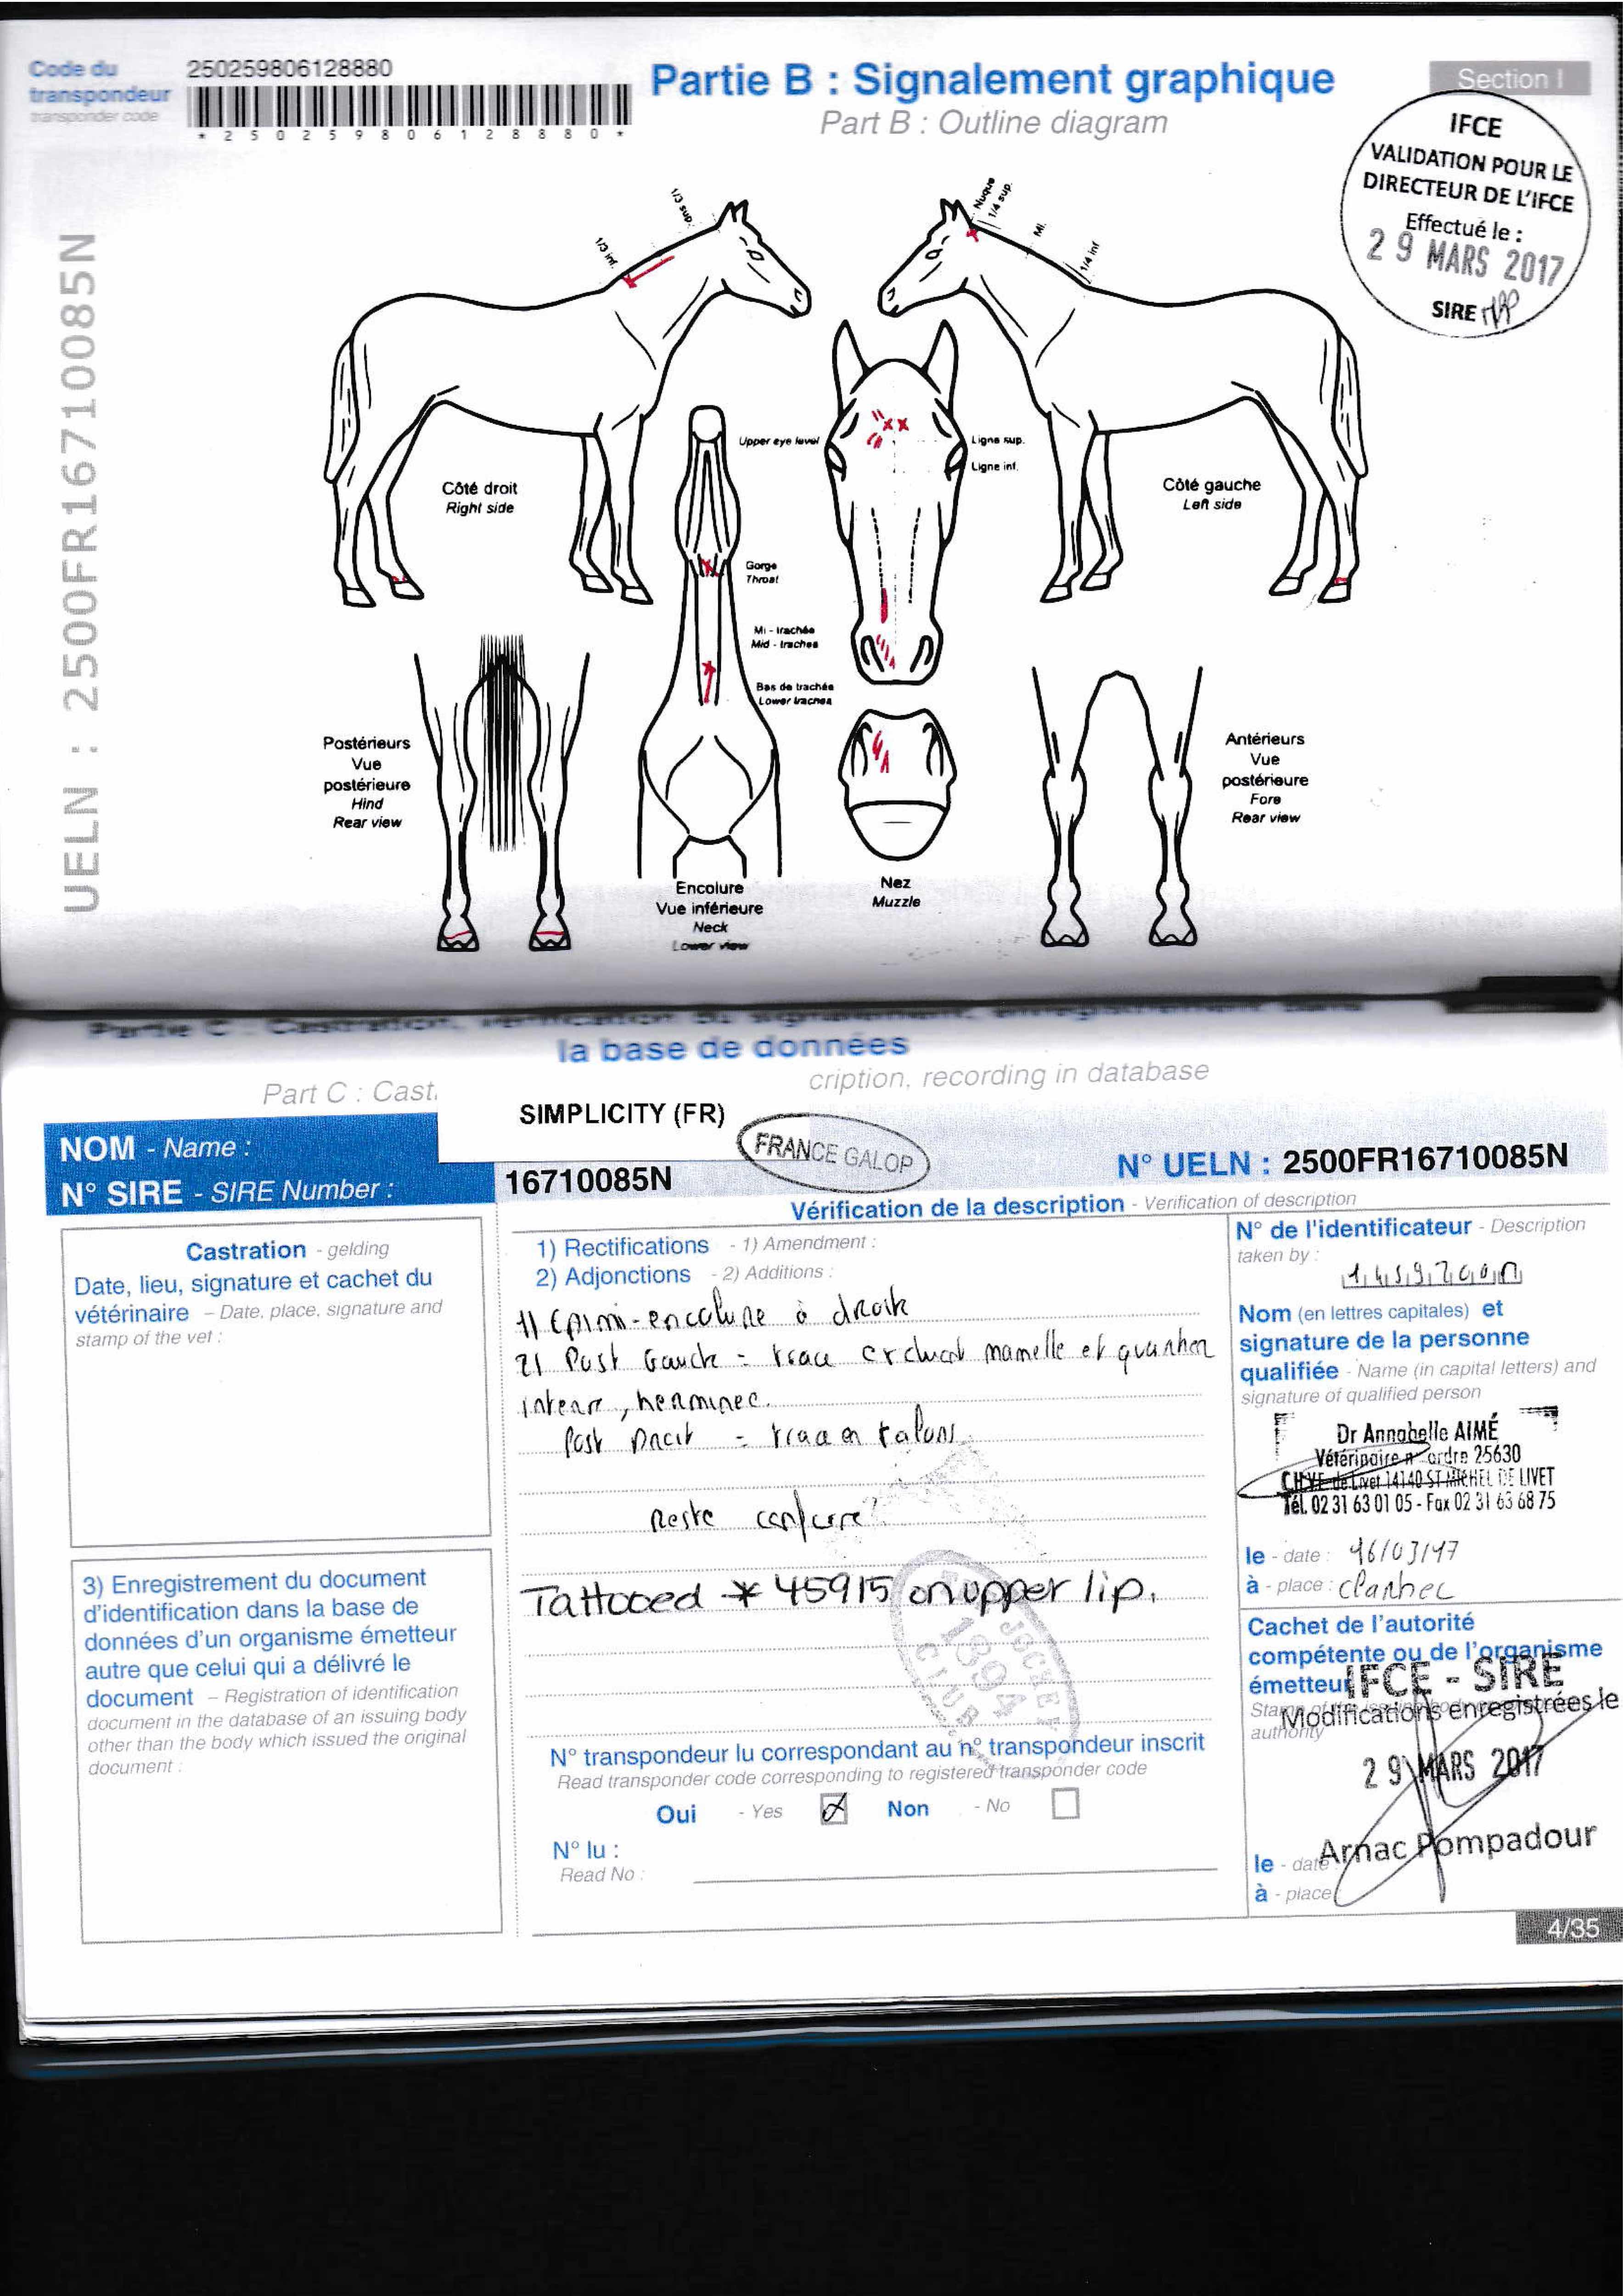 Code du
transpondeur
transponder code
250259806128880
* 2 5 0 2 5 9 8 0 6 1 2 8 8 8 0 *
Partie B : Signalement graphique
Part B : Outline diagram
Section I
IFCE
VALIDATION POUR LE
DIRECTEUR DE L'IFCE
Effectué le :
29 MARS 2017
SIRE
UELN : 2500FR16710085N
1/3 sup.
1/3 inf.
Nuque
1/4 sup.
Mi.
1/4 inf
Upper eye level
Ligne sup.
Ligne inf.
Côté droit
Right side
Côté gauche
Left side
Gorge
Throat
Mi - trachée
Mid - trachea
Bas de trachée
Lower trachea
Postérieurs
Vue
postérieure
Hind
Rear view
Antérieurs
Vue
postérieure
Fore
Rear view
Encolure
Vue inférieure
Neck
Lower view
Nez
Muzzle
Partie C : Castration, vérification du signalement, enregistrement dans
la base de données
Part C : Cast
cription, recording in database
NOM - Name :
SIMPLICITY (FR)
FRANCE GALOP
N° SIRE - SIRE Number :
16710085N
N° UELN : 2500FR16710085N
Vérification de la description - Verification of description
Castration - gelding
Date, lieu, signature et cachet du
vétérinaire - Date, place, signature and
stamp of the vet :
1) Rectifications - 1) Amendment :
2) Adjonctions - 2) Additions :
1) Epi mi-encolure à droite
2) Post Gauche = trace excluant mamelle et quartier
interne, herminee.
Post Droit = trace en talons
Reste conforme
Tattooed * 45915 on upper lip.
JOCKEY
1894
CLUB
N° transpondeur lu correspondant au n° transpondeur inscrit
Read transponder code corresponding to registered transponder code
Oui - Yes Non - No
N° lu :
Read No :
3) Enregistrement du document
d'identification dans la base de
données d'un organisme émetteur
autre que celui qui a délivré le
document - Registration of identification
document in the database of an issuing body
other than the body which issued the original
document :
N° de l'identificateur - Description
taken by :
Nom (en lettres capitales) et
signature de la personne
qualifiée - Name (in capital letters) and
signature of qualified person
Dr Annabelle AIMÉ
Vétérinaire n° ordre 25630
CHVE de Livet 14140 ST MICHEL DE LIVET
Tél. 02 31 63 01 05 - Fax 02 31 63 68 75
le - date : 16/03/17
à - place : Clarbec
Cachet de l'autorité
compétente ou de l'organisme
émetteur
IFCE - SIRE
Modifications enregistrées le
authority
29 MARS 2017
Arnac Pompadour
le - date
à - place
4/35